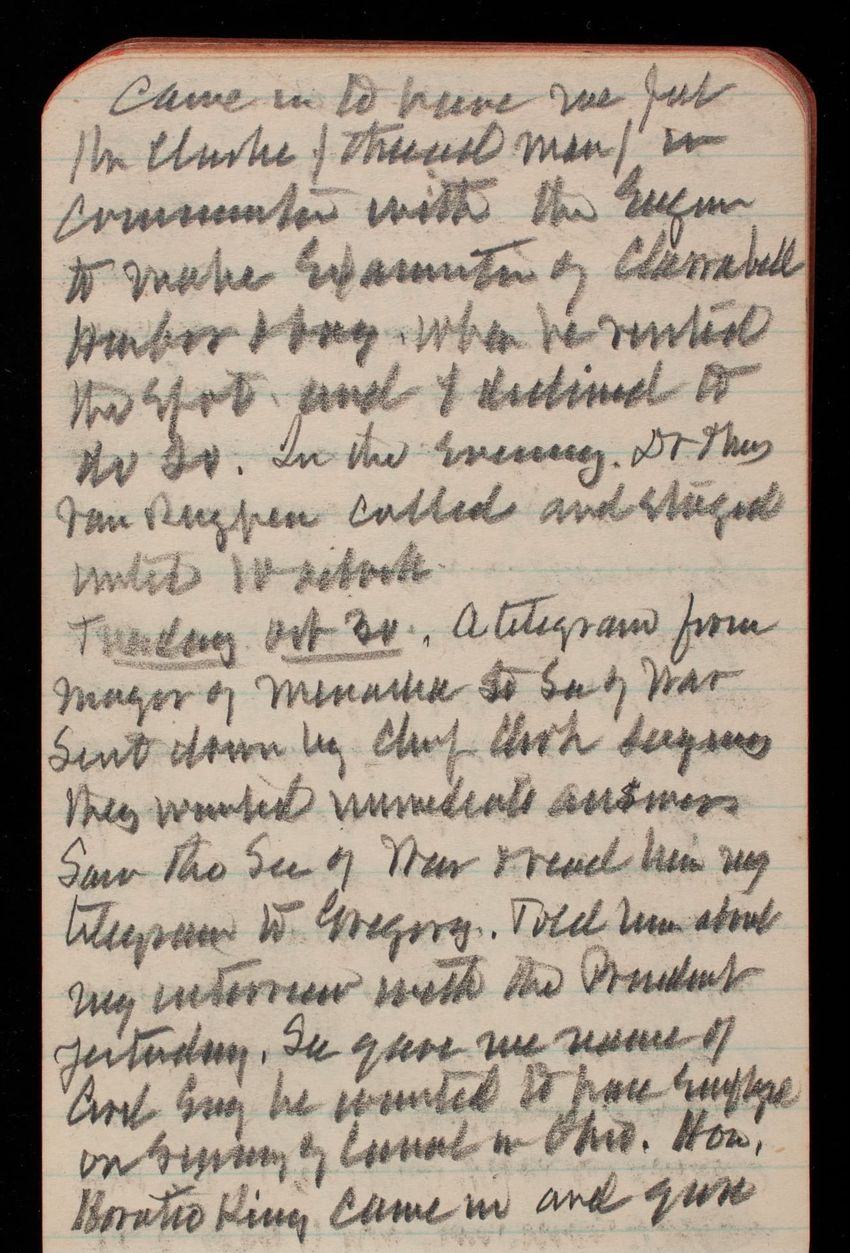 Came in to have me put
Mr Clarke / thread man / in
communication with the Engr
to make Examination of
Harbor & bay. When he visited
the spot. and I declined to
do so. In the Evening. Dr Thos
Van Reypen called and stayed
until 10 oclock
Tuesday Oct 30. A telegram from
Mayor of Menasha to Sec of War
Sent down by Chief Clerk saying
they wanted immediate answer
Saw the Sec of War & read him my
telegram to Gregory. Told him about
my interview with the President
yesterday. Sec gave me name of
Civil Eng he wanted to have Employed
on Survey of Canal in Ohio. Hon.
Horatio King came in and gave